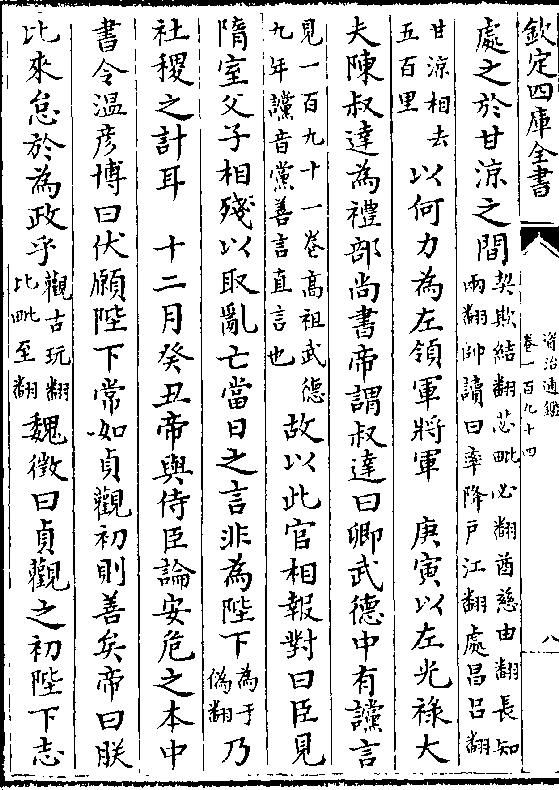 欽定四庫全書
資治通鑑
卷一百九十四
八
處之於甘涼之間契欺訖翻苾毗必翻酋慈由翻長知
兩翻帥讀曰率降戶江翻處昌呂翻
甘涼相去
五百里以何力為左領軍將軍　庚寅以左光祿大
夫陳叔達為禮部尚書帝謂叔達曰卿武德中有讜言
見一百九十一卷高祖武德
九年讜音黨善言直言也故以此官相報對曰臣見
隋室父子相殘以取亂亡當日之言非為陛下為于
偽翻乃
社稷之計耳　十二月癸丑帝與侍臣論安危之本中
書令溫彥博曰伏願陛下常如貞觀初則善矣帝曰朕
比來怠於為政乎觀古玩翻
比毗至翻魏徵曰貞觀之初陛下志